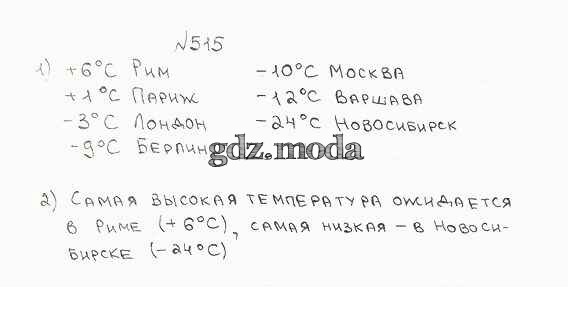 №515
1) +6°C Рим -10°C Москва
+1°C Париж -12°C Варшава
-3°C Лондон -24°C Новосибирск
-9°C Берлин
gdz.moda
2) Самая высокая температура ожидается
в Риме (+6°C), самая низкая - в Новоси-
бирске (-24°C)